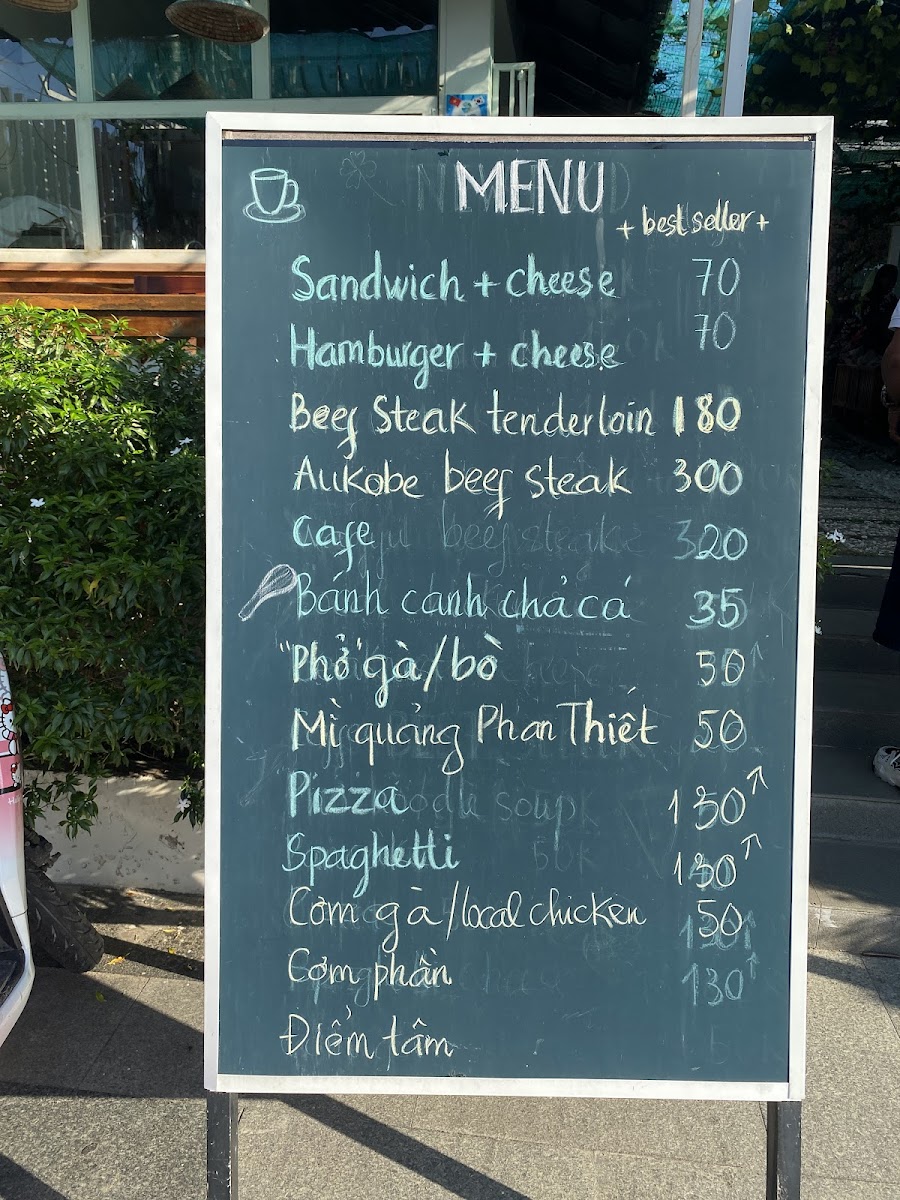 MENU
+ best seller +
Sandwich + cheese 70
Hamburger + cheese 70
Beef Steak tenderloin 180
Aukobe beef steak 300
Cafe 20
Bánh canh chả cá 35
"Phở" gà/bò 50
Mì quảng Phan Thiết 50
Pizza 150↑
Spaghetti 130↑
Cơm gà/local chicken 50
Cơm phần 130↑
Điểm tâm